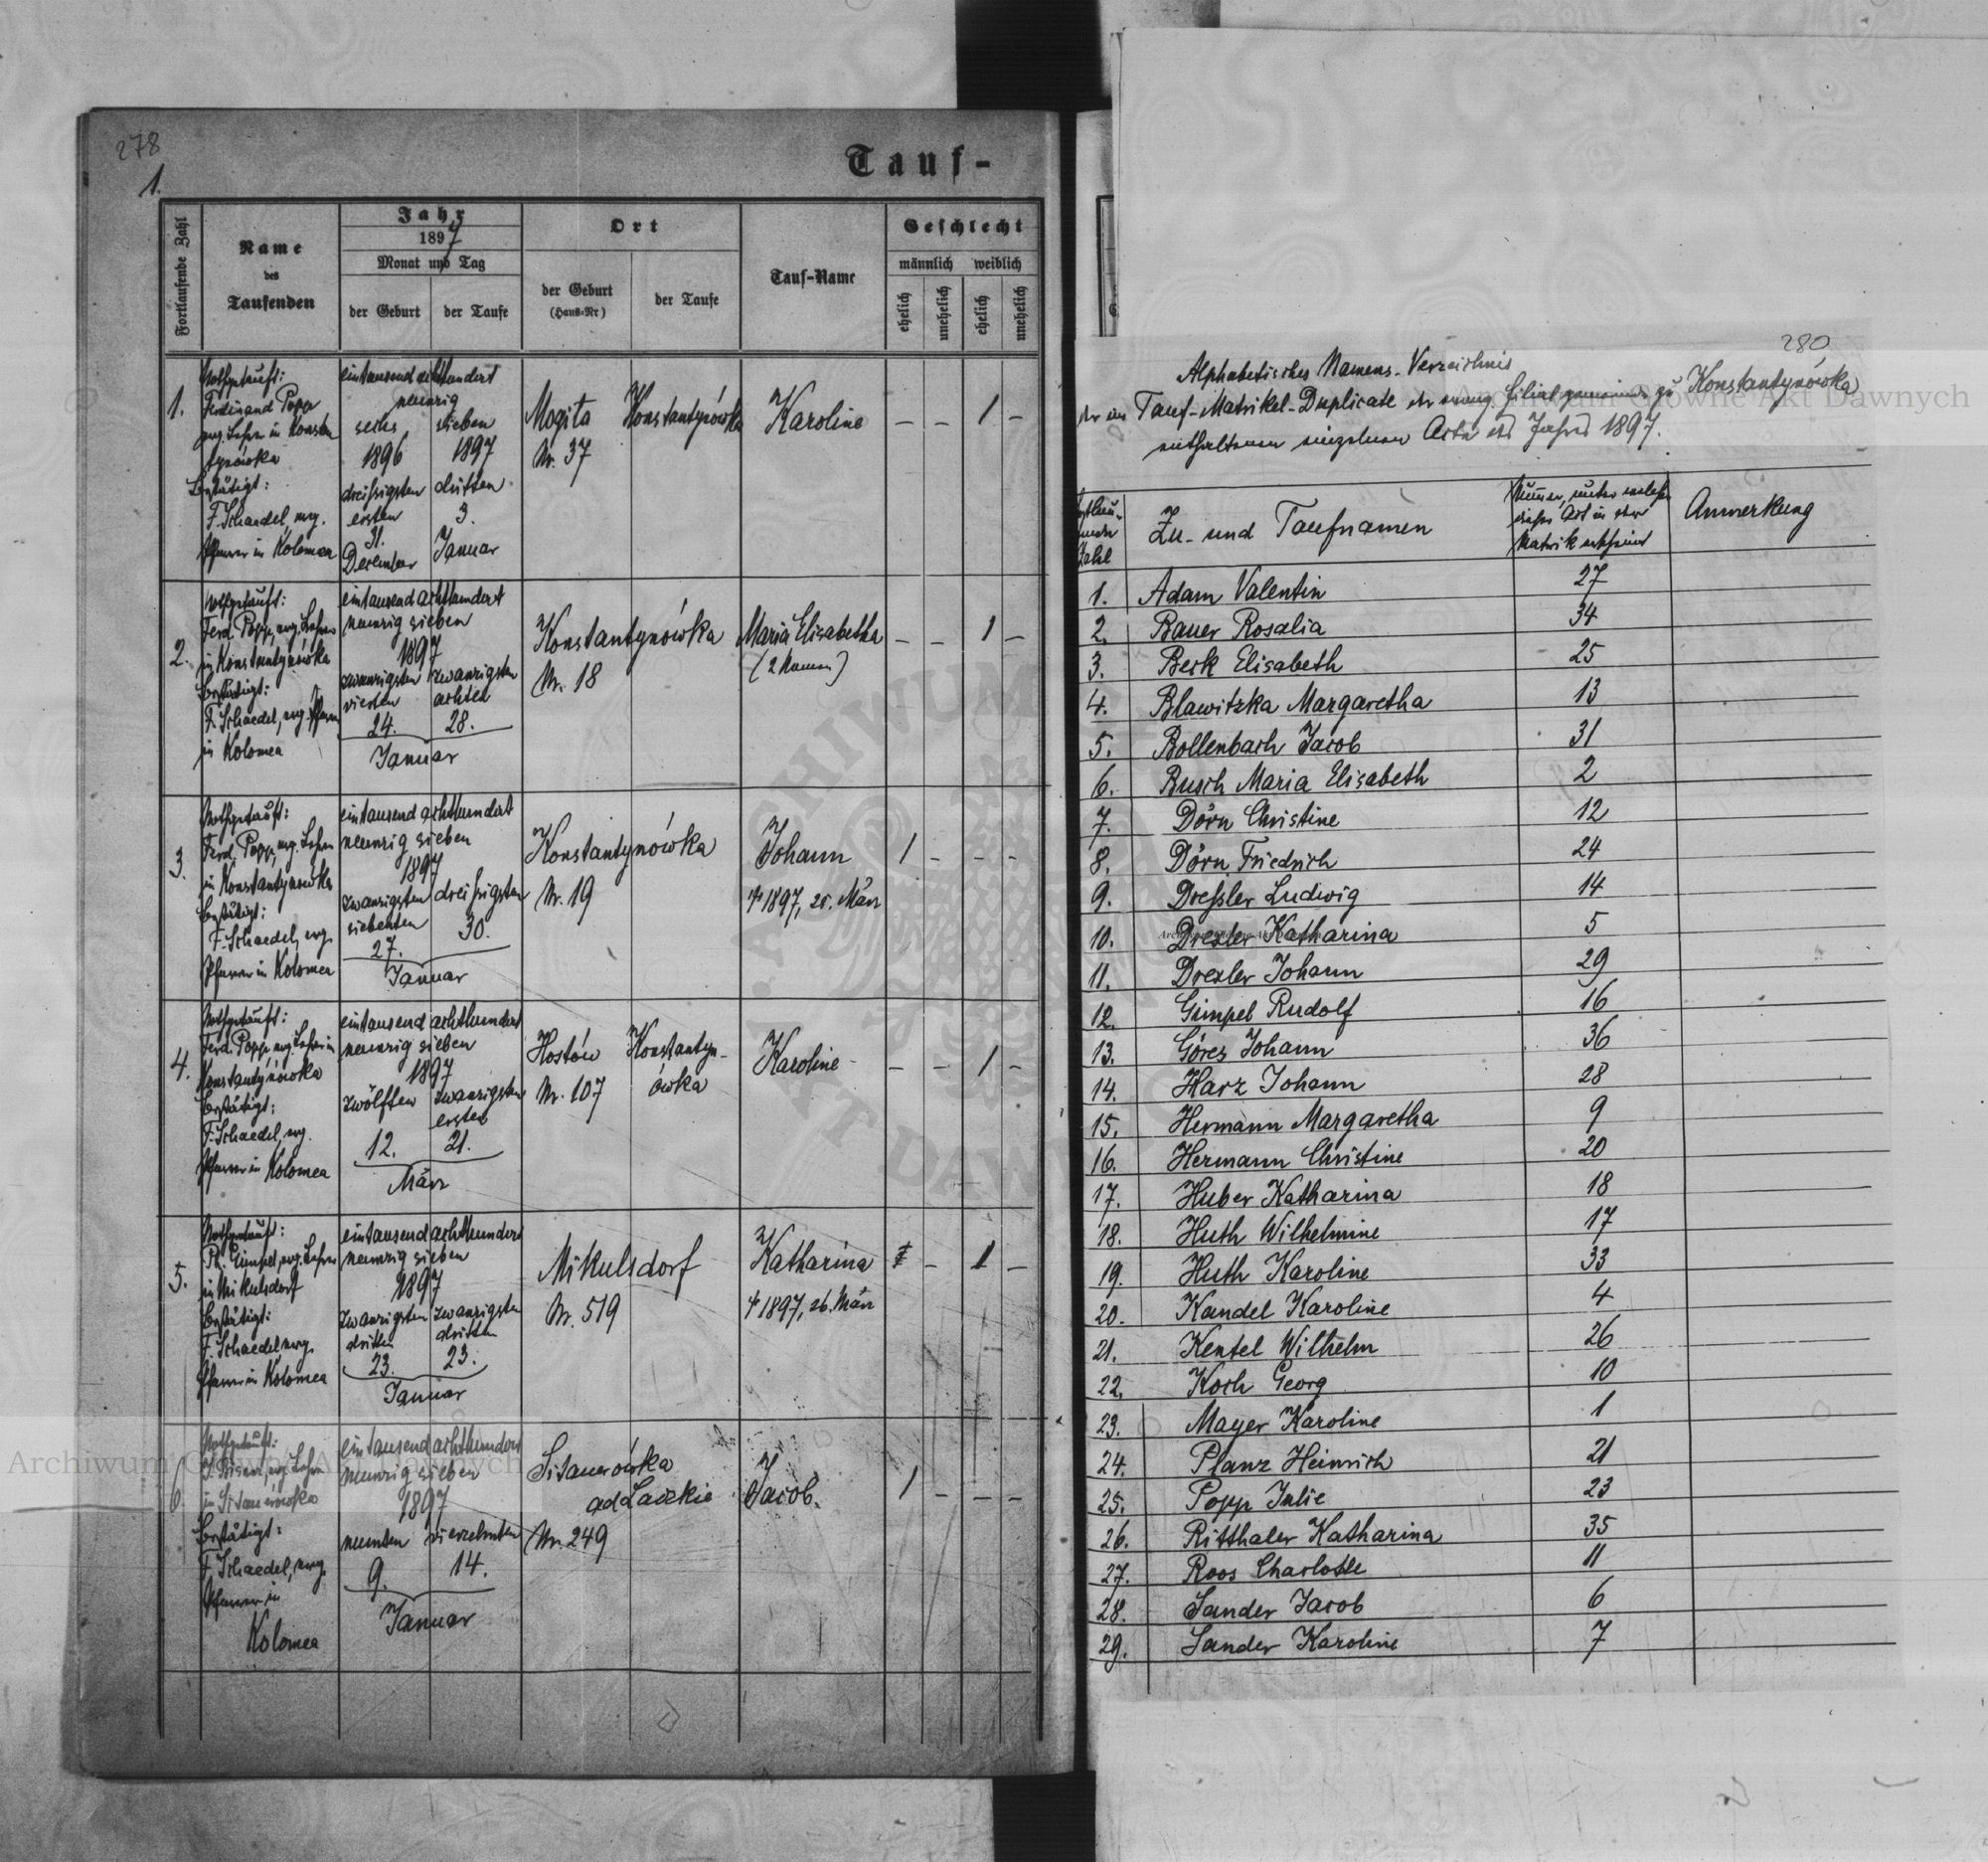 278
1.
Tauf-
Fortlaufende Zahl
Name
des
Taufenden
Jahr
1897
Monat und Tag
der Geburt
der Taufe
Ort
der Geburt
(Haus-Nr)
der Taufe
Tauf-Name
Geschlecht
männlich weiblich
ehelich
unehelich
ehelich
unehelich
1.
Nothgetauft:
Ferdinand Popp
evg. Lehrer in Konstan
tynówka
Bestätigt:
F. Schaedel, evg.
Pfarrer in Kolomea
eintausend achthundert
neunzig
sechs sieben
1896 1897
dreißigsten dritten
ersten 3.
31.
December Januar
Mogita Konstantynówka
Nr. 37
Karoline
– – 1 –
2.
Nothgetauft:
Ferd. Popp, evg. Lehrer
in Konstantynówka
Bestätigt:
F. Schaedel, evg. Pfarrer
in Kolomea
eintausend achthundert
neunzig sieben
1897
zwanzigsten zwanzigsten
vierten achten
24. 28.
Januar
Konstantynówka
Nr. 18
Maria Elisabetha
(2 Namen)
– – 1 –
3.
Nothgetauft:
Ferd. Popp, evg. Lehrer
in Konstantynówka
Bestätigt:
F. Schaedel, evg.
Pfarrer in Kolomea
eintausend achthundert
neunzig sieben
1897
zwanzigsten dreißigsten
siebenten 30.
27.
Januar
Konstantynówka
Nr. 19
Johann
† 1897, 25. März
1 – – –
4.
Nothgetauft:
Ferd. Popp, evg. Lehrer in
Konstantynówka
Bestätigt:
F. Schaedel, evg.
Pfarrer in Kolomea
eintausend achthundert
neunzig sieben
1897
zwölften zwanzigsten
ersten
12. 21.
März
Hostów Konstantyn-
Nr. 107 ówka
Karoline
– – 1 –
5.
Nothgetauft:
Ph. Gimpel, evg. Lehrer
in Mikulsdorf
Bestätigt:
F. Schaedel, evg.
Pfarrer in Kolomea
eintausend achthundert
neunzig sieben
1897
zwanzigsten zwanzigsten
dritten dritten
23. 23.
Januar
Mikulsdorf
Nr. 519
Katharina
† 1897, 26. März
– 1 –
6.
Nothgetauft:
evg. Lehrer
in Sitauerówka
Bestätigt:
F. Schaedel, evg.
Pfarrer in
Kolomea
eintausend achthundert
neunzig sieben
1897
neunten vierzehnten
9. 14.
Januar
Sitauerówka
ad Laczkie
Nr. 249
Jacob.
1 – – –
280
Alphabetisches Namens-Verzeichnis
der im Tauf-Matrikel-Duplicate der evang. Filialgemeinde zu Konstantynówka
enthaltenen einzelnen Acte des Jahres 1897.
Fortlau-
fende
Zahl
Zu- und Taufnamen
Nummer, unter welcher
dieser Act in der
Matrik erscheint
Anmerkung
1. Adam Valentin 27
2. Bauer Rosalia 34
3. Beck Elisabeth 25
4. Blawitzka Margaretha 13
5. Bollenbach Jacob 31
6. Busch Maria Elisabeth 2
7. Dörn Christine 12
8. Dörn Friedrich 24
9. Dreßler Ludwig 14
10. Drexler Katharina 5
11. Drexler Johann 29
12. Gimpel Rudolf 16
13. Göres Johann 36
14. Harz Johann 28
15. Hermann Margaretha 9
16. Hermann Christine 20
17. Huber Katharina 18
18. Huth Wilhelmine 17
19. Huth Karoline 33
20. Kandel Karoline 4
21. Kentel Wilhelm 26
22. Koch Georg 10
23. Mayer Karoline 1
24. Planz Heinrich 21
25. Popp Julie 23
26. Ritthaler Katharina 35
27. Roos Charlotte 11
28. Sander Jacob 6
29. Sander Karoline 7
Archiwum Główne Akt Dawnych
Archiwum Główne Akt Dawnych